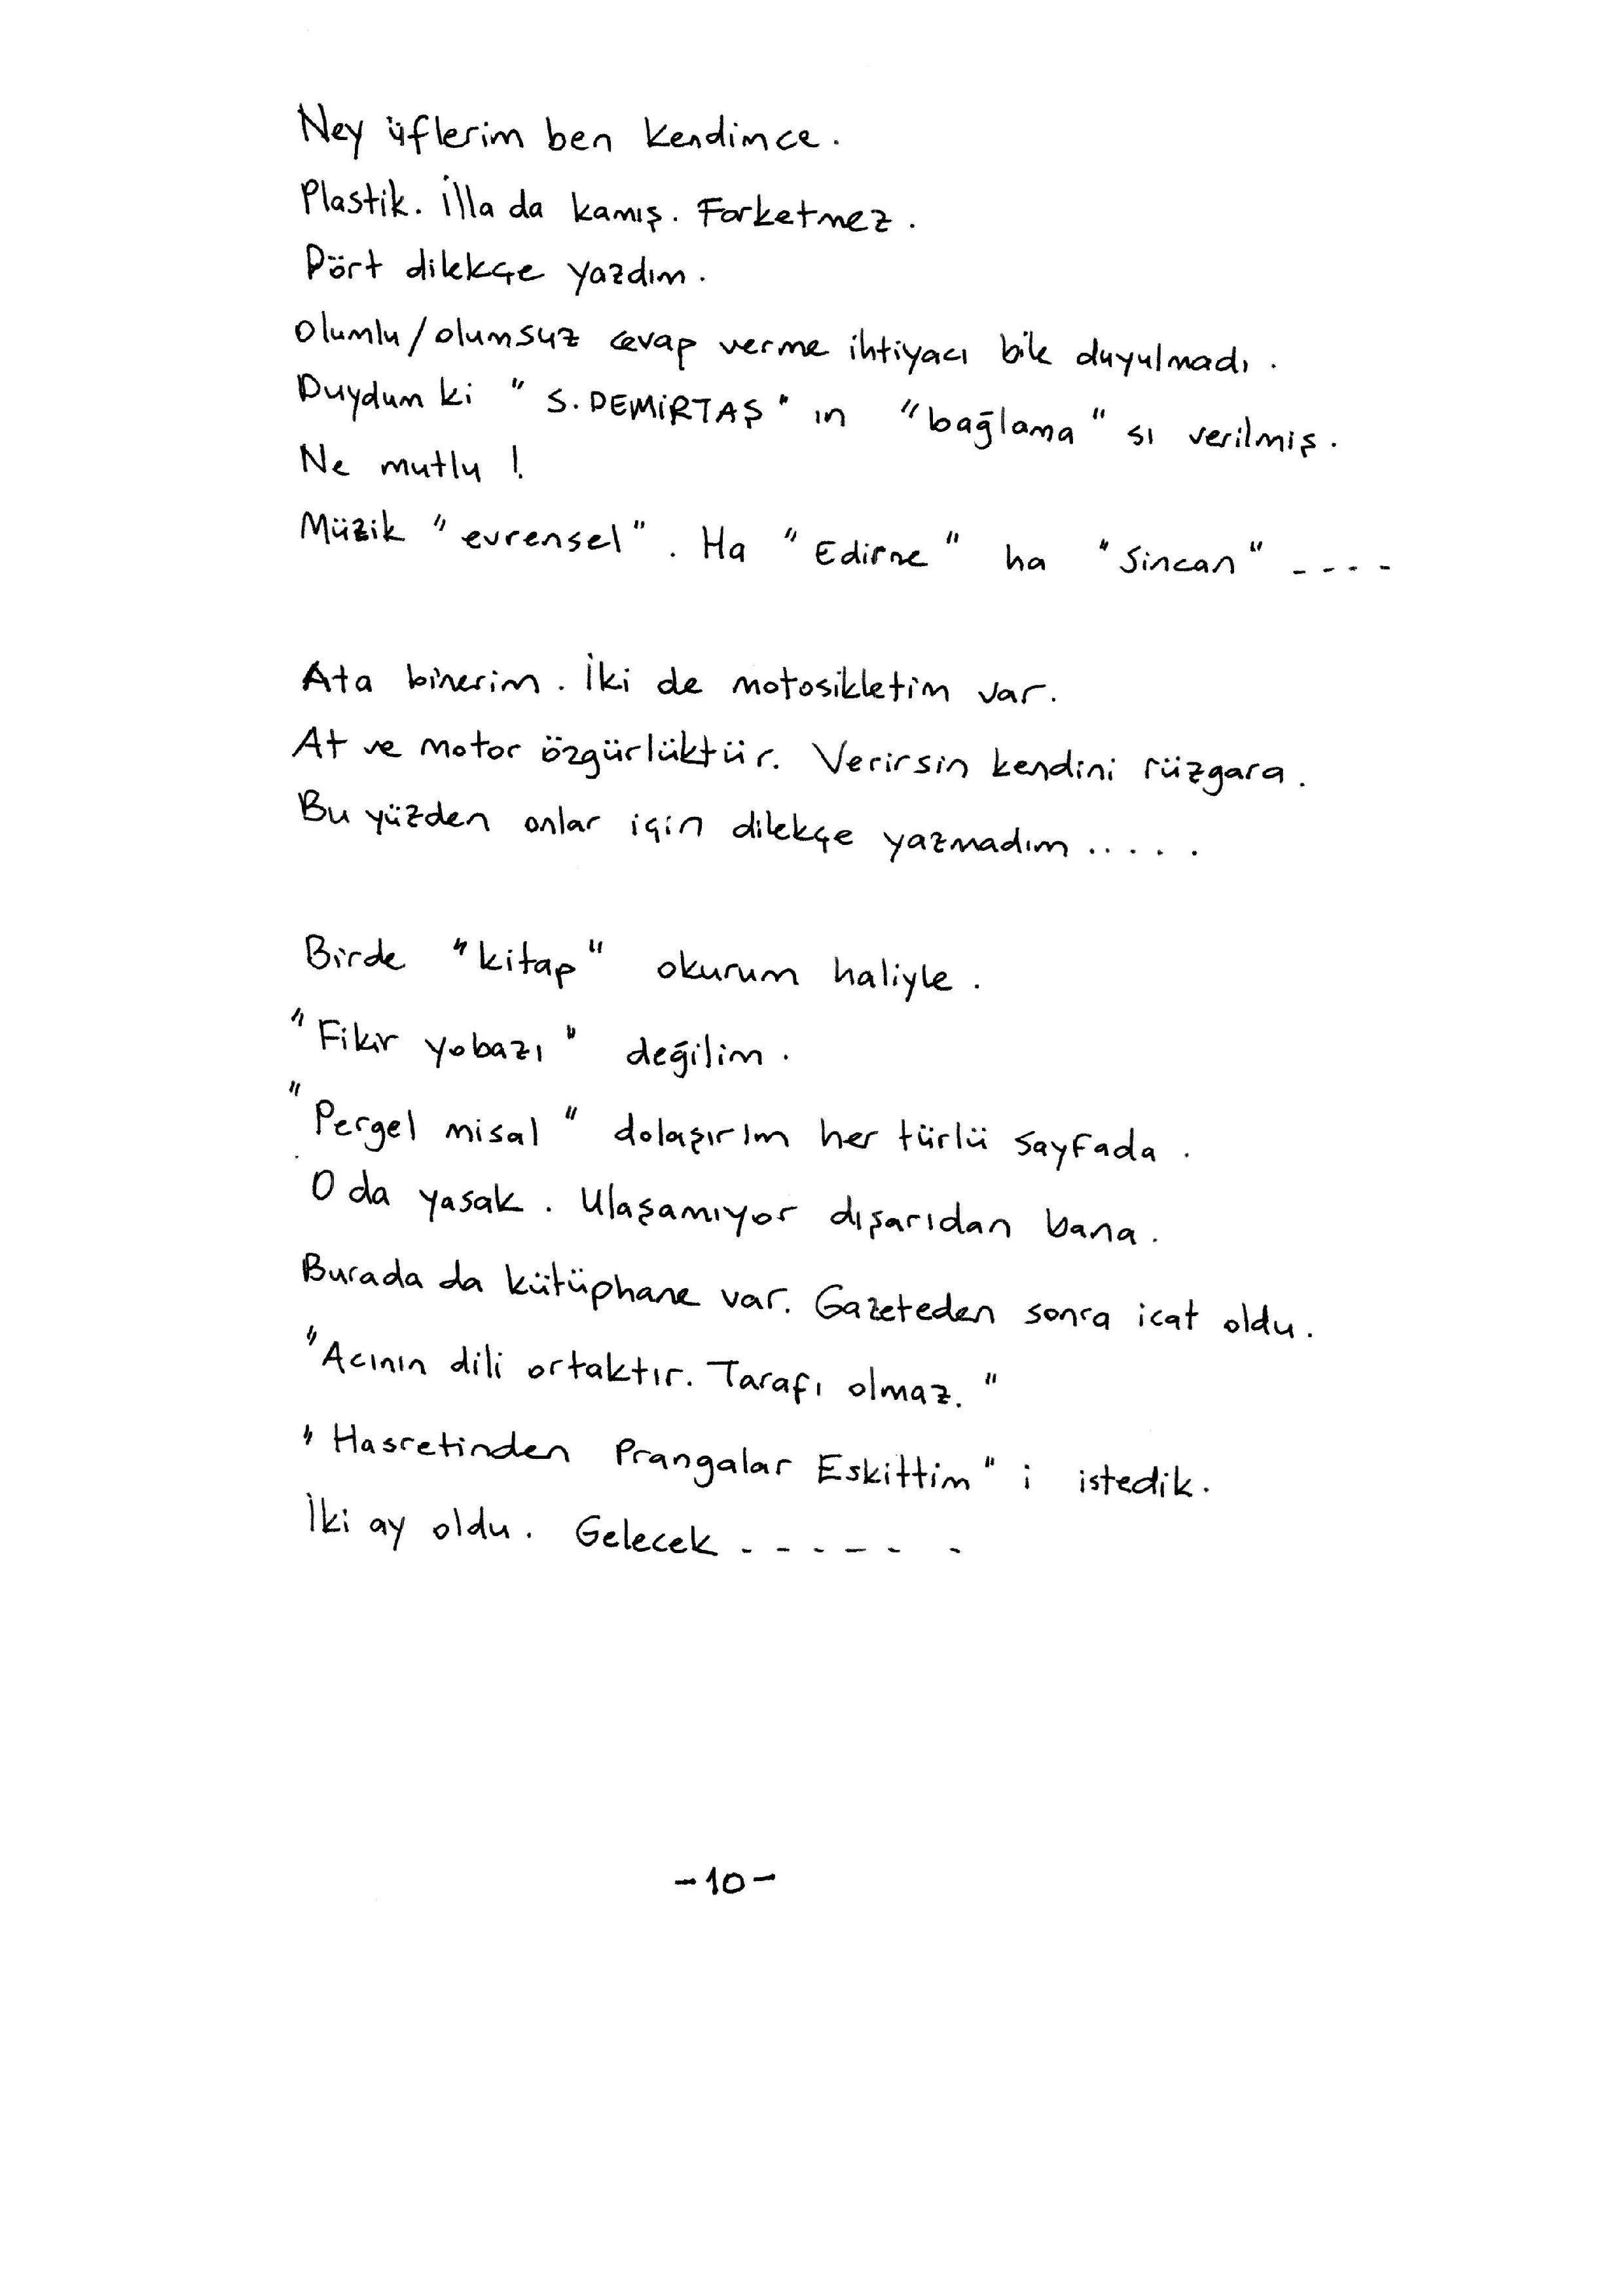 Ney üflerim ben kendimce.
Plastik. İlla da kamış. Farketmez.
Dört dilekçe yazdım.
Olumlu/olumsuz cevap verme ihtiyacı bile duyulmadı.
Duydum ki "S.DEMİRTAŞ" ın "bağlama" sı verilmiş.
Ne mutlu !
Müzik "evrensel". Ha "Edirne" ha "Sincan" ----
Ata binerim. İki de motosikletim var.
At ve motor özgürlüktür. Verirsin kendini rüzgara.
Bu yüzden onlar için dilekçe yazmadım .....
Birde "kitap" okurum haliyle.
"Fikir yobazı" değilim.
"Pergel misal" dolaşırım her türlü sayfada.
O da yasak. Ulaşamıyor dışarıdan bana.
Burada da kütüphane var. Gazeteden sonra icat oldu.
"Acının dili ortaktır. Tarafı olmaz."
"Hasretinden Prangalar Eskittim" i istedik.
İki ay oldu. Gelecek ------
-10-